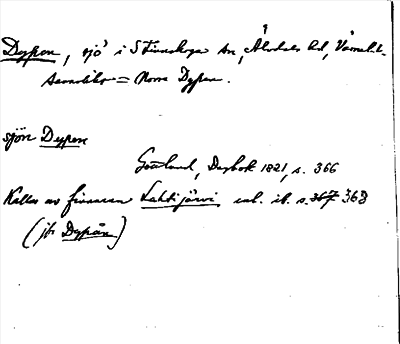 Dypen, sjö i S Finnskoga sn, Älvdals hd, Värml.l.
sannolikt = Norra Dypen.
sjön Dypen
Gottlund, Dagbok 1821, s. 366
Kallas av finnarna Lahtijärvi enl. ib. s. 367 368
(jfr Dypån)